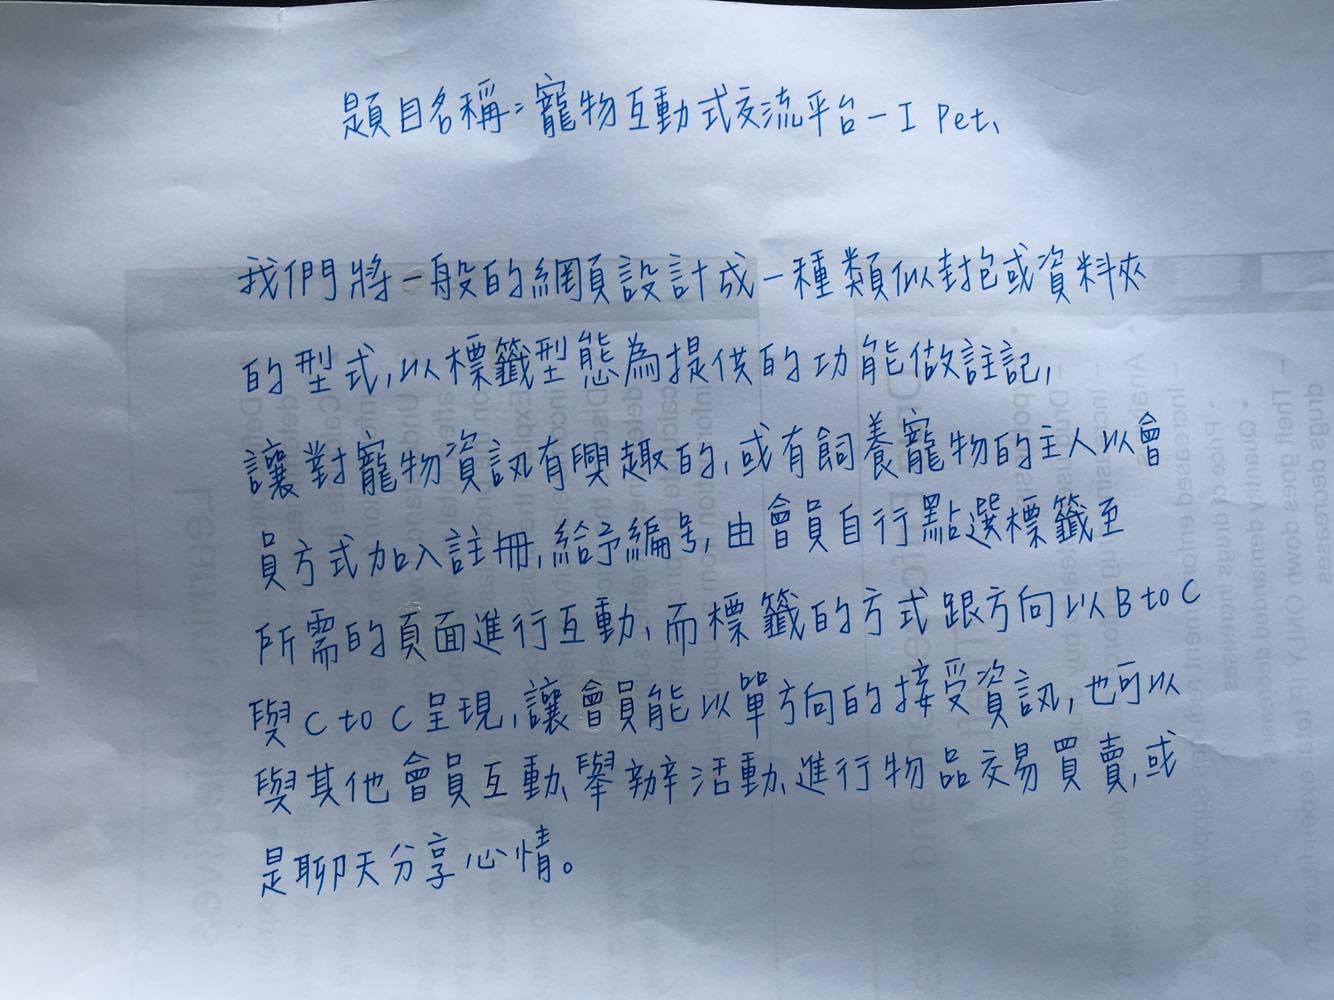 題目名稱：寵物互動式交流平台－I Pet、
我們將一般的網頁設計成一種類似封包或資料夾
的型式，以標籤型態為提供的功能做註記，
讓對寵物資訊有興趣的，或有飼養寵物的主人以會
員方式加入註冊，給予編號，由會員自行點選標籤至
所需的頁面進行互動、而標籤的方式跟方向以B to C
與C to C呈現，讓會員能以單方向的接受資訊，也可以
與其他會員互動、舉辦活動、進行物品交易買賣，或
是聊天分享心情。